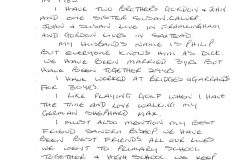 I HAVE TWO BROTHERS GORDON & JOHN
AND ONE SISTER SUSAN.
JOHN & SUSAN LIVE IN FRAMLINGHAM
AND GORDON LIVES IN
MY HUSBANDS NAME IS PHILIP
BUT EVERYONE KNOWS HIM AS DICK.
WE HAVE BEEN MARRIED
HAVE BEEN TOGETHER
I HAVE WORKED AT BRIDGES
FOR
I LIKE PLAYING GOLF WHEN I HAVE
THE TIME AND LOVE WALKING MY
GERMAN SHEPHERD MAX.
I MUST ALSO MENTION MY BEST
FRIEND SANDRA BISHOP WE HAVE
BEEN BEST FRIENDS ALL OUR LIVES
WE WENT TO PRIMARY SCHOOL
TOGETHER & HIGH SCHOOL WE KEEP